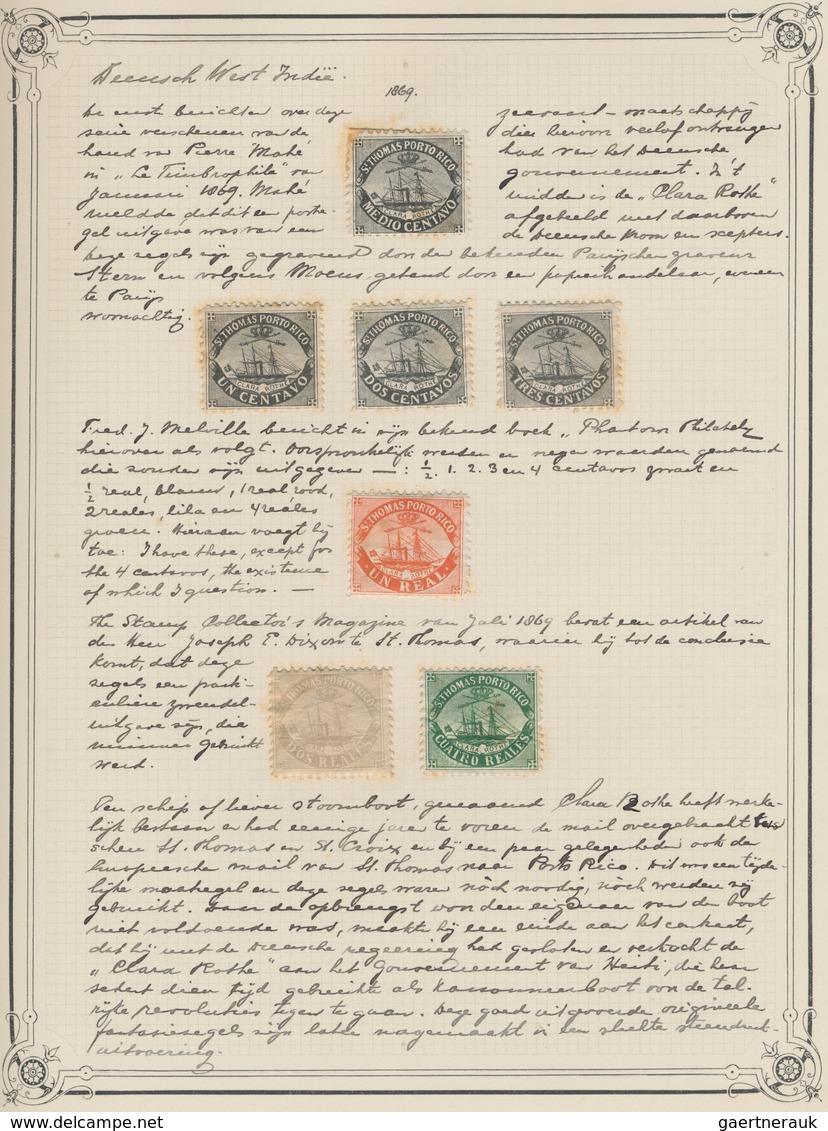 Deensch West Indië.
1869.
De eerste berichten over deze
serie verschenen van de
hand van Pierre Mahé
in „Le Timbrophile" van
Januari 1869. Mahé
meldde dat dit een postze-
gel uitgave was van een
zeevaart-maatschappij
die hiervoor verlof ontvangen
had van het Deensche
gouvernement. In 't
midden is de „Clara Rothe"
afgebeeld met daarboven
de Deensche kroon en scepters.
ST THOMAS PORTO RICO
CLARA ROTHE
MEDIO CENTAVO
Deze zegels zijn gegraveerd door den bekenden Parijschen graveur
Stern en volgens Moens gedrukt door een papierhandelaar, eveneens
te Parijs
woonachtig.
ST THOMAS PORTO RICO
CLARA ROTHE
UN CENTAVO
ST THOMAS PORTO RICO
CLARA ROTHE
DOS CENTAVOS
ST THOMAS PORTO RICO
CLARA ROTHE
TRES CENTAVOS
Fred. J. Melville bericht in zijn bekend boek „Phantom Philately
hierover als volgt. Oorspronkelijk werden er negen waarden genoemd
die zouden zijn uitgegeven —: ½. 1. 2. 3 en 4 centavos zwart en
½ real, blauw, 1 real rood,
2 reales, lila en 4 reales
groen. Hieraan voegt hij
toe: I have these, except for
the 4 centavos, the existence
of which I question. —
ST THOMAS PORTO RICO
CLARA ROTHE
UN REAL
The Stamp Collector's Magazine van Juli 1869 bevat een artikel van
den Heer Joseph E. Dixon te St. Thomas, waarin hij tot de conclusie
komt, dat deze
zegels een parti-
culiere zwendel-
uitgave zijn, die
nimmer gebruikt
werd.
ST THOMAS PORTO RICO
CLARA ROTHE
DOS REALES
ST THOMAS PORTO RICO
CLARA ROTHE
CUATRO REALES
Een schip of liever stoomboot, genaamd Clara Rothe heeft werke-
lijk bestaan en had eenige jaren te voren de mail overgebracht tus
schen St. Thomas en St. Croix en bij een paar gelegenheden ook de
Europeesche mail van St. Thomas naar Porto Rico. Dit was een tijde-
lijke maatregel en deze zegels waren nòch noodig, nòch werden zij
gebruikt. Daar de opbrengst voor den eigenaar van de boot
niet voldoende was, maakte hij een einde aan het contract,
dat hij met de Deensche regeering had gesloten en verkocht de
„Clara Rothe" aan het Gouvernement van Haiti, die haar
sedert dien tijd gebruikte als kanonneerboot om de tal-
rijke revoluties tegen te gaan. Deze goed uitgevoerde origineele
fantasiezegels zijn later nagemaakt in een slechte steendruk-
uitvoering.
gaertnerauk